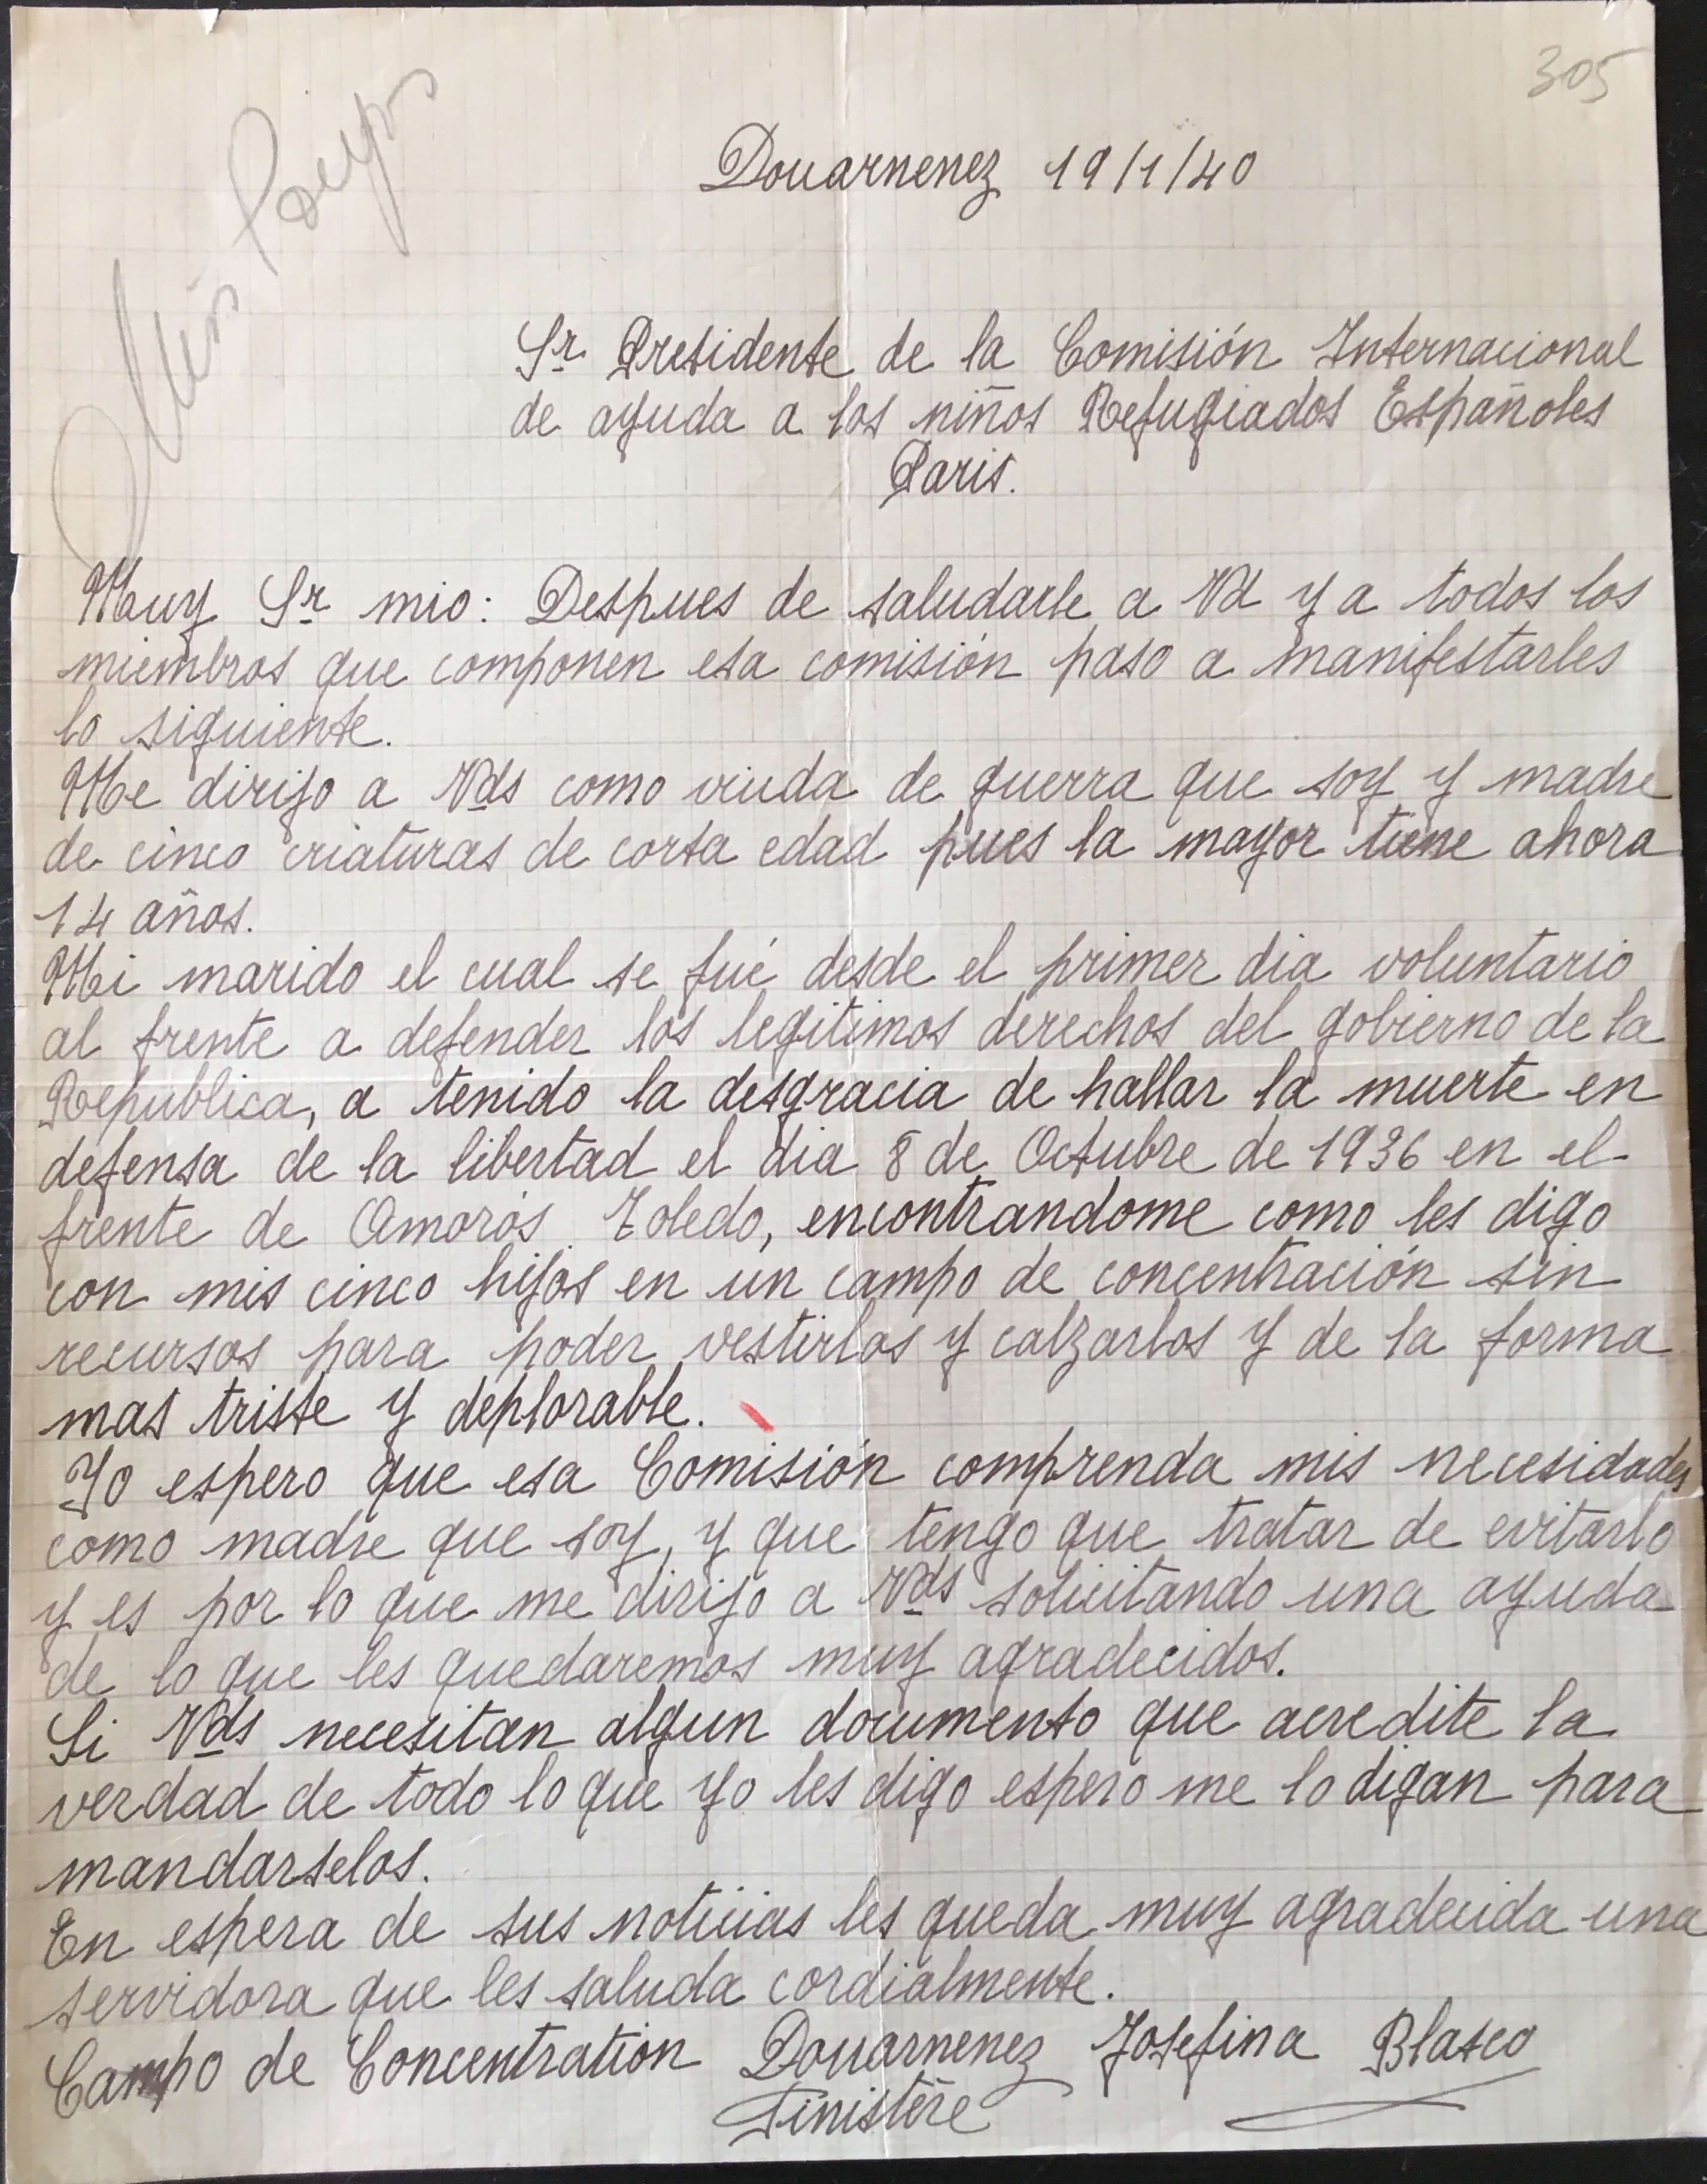 305
Douarnenez 19/1/40
Sr Presidente de la Comisión Internacional
de ayuda a los niños Refugiados Españoles
Paris.
Muy Sr mio: Despues de saludarle a Vd y a todos los
miembros que componen esa comisión paso a manifestarles
lo siguiente.
Me dirijo a Vds como viuda de guerra que soy y madre
de cinco criaturas de corta edad pues la mayor tiene ahora
14 años.
Mi marido el cual se fué desde el primer dia voluntario
al frente a defender los legitimos derechos del gobierno de la
Republica, a tenido la desgracia de hallar la muerte en
defensa de la libertad el dia 8 de Octubre de 1936 en el
frente de Amorós Toledo, encontrandome como les digo
con mis cinco hijos en un campo de concentración sin
recursos para poder vestirlos y calzarlos y de la forma
mas triste y deplorable.
Yo espero que esa Comisión comprenda mis necesidades
como madre que soy, y que tengo que tratar de evitarlo
y es por lo que me dirijo a Vds solicitando una ayuda
de lo que les quedaremos muy agradecidos.
Si Vds necesitan algun documento que acredite la
verdad de todo lo que yo les digo espero me lo digan para
mandarselos.
En espera de sus noticias les queda muy agradecida una
servidora que les saluda cordialmente.
Campo de Concentration Douarnenez Josefina Blasco
Finistère